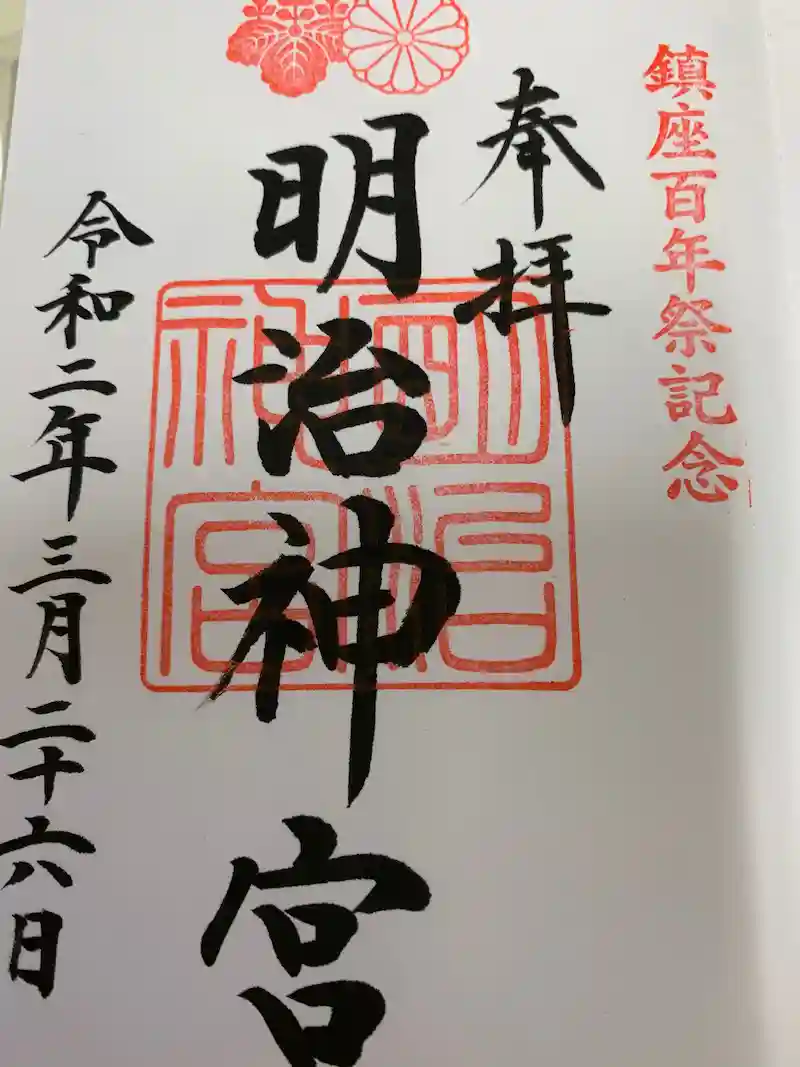 鎮座百年祭記念
奉拝
明治神宮
明治神宮
令和二年三月二十六日